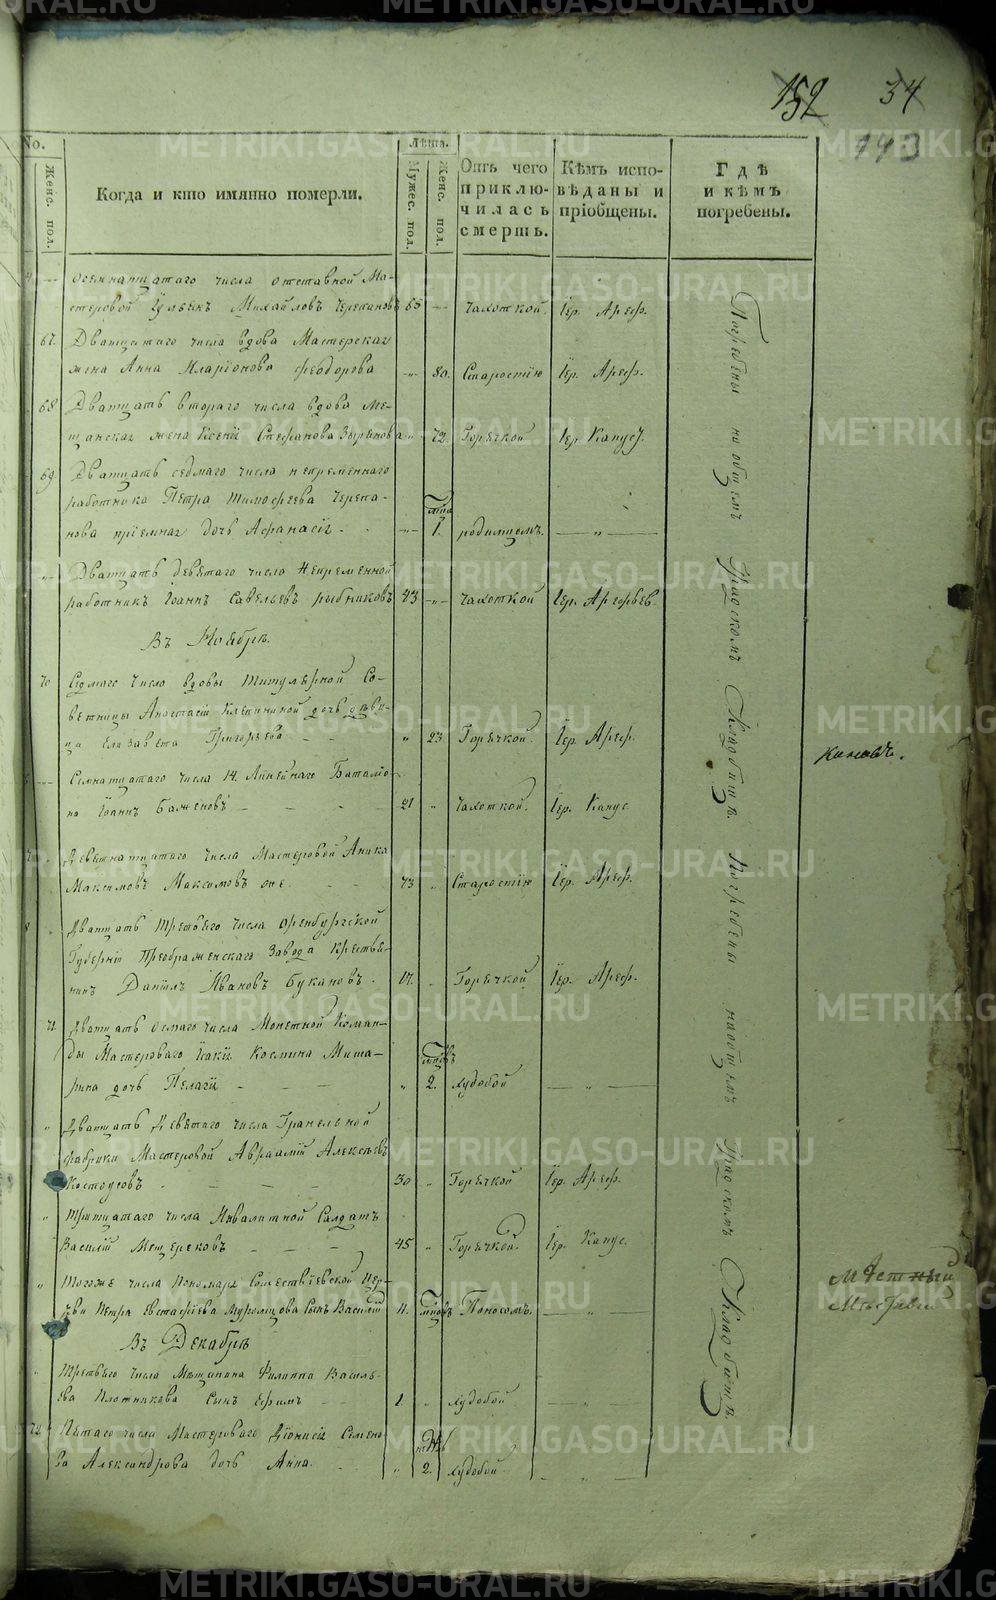 152 34
193
No. Лѣта.
Женс. пол.
Когда и кто имянно померли.
Мужес. пол.
Женс. пол.
Отъ чего приключилась смерть.
Кѣмъ исповѣданы и пріобщены.
Гдѣ и кѣмъ погребены.
осемнатцатаго числа отставной Ма-
стеровой Михайловъ Черепановъ 65 — чахоткой. Іер. Ареф.
67. Дватцатаго числа вдова Мастерская
жена Анна Иларіонова Феодорова — 80. Старостію Іер. Ареф.
68 Дватцать втораго числа вдова Ме-
щанская жена Ксенія Стефанова Зырянова " 72. Горячкой Іер. Капус.
69 Дватцать седмаго числа непременнаго
работника Петра Тимофеева Черепа-
нова пріемная дочь Афанасія — 1. родимцомъ. — " —
Дватцать девятаго числа Непременной
работникъ Іоаннъ Савельевъ Рыбниковъ 43 — чахоткой Іер. Арефьев.
Въ Ноябрѣ.
70 Седмаго числа вдовы Титулярной Со-
ветницы Анастасіи Клепининой дочь дѣви-
ца Елизавета Григорьева " 23 Горячкой. Іер. Ареф.
Семнатцатаго числа 14. Линейнаго Баталіо-
на Іоаннъ Баженовъ — 21 " чахоткой. Іер. Капус.
7 Девятнатцатаго числа Мастеровой Аника
Максимовъ Максимовъ оне. — 73 " Старостію Іер. Ареф.
8 Дватцать третьяго числа Оренбургской
Губерніи Преображенскаго Завода Крестья-
нинъ Даніилъ Ивановъ Букановъ. 17. " Горячкой Іер. Ареф.
71. Дватцать осмаго числа Монетной Коман-
ды Мастероваго Косьмина Мита-
рина дочь Пелагія — " 2. худобой — " —
" Дватцать Девятаго числа Гранильной
фабрики Мастеровой Авраамій Алексѣевъ
Костоусовъ — 30 " Горячкой Іер. Ареф.
" Тритцатаго числа Инвалитной Салдатъ
Василій Мещеряковъ — 45 " Горячкой. Іер. Капус.
" Тогоже числа Пономаря Сошествіевской Цер-
кви Петра Евстафіева Мурзинцова Сынъ Василій 11. Поносомъ. — " —
Въ Декабрѣ
Третьяго числа Мѣщанина Филиппа Василь-
ева Плотникова Сынъ Ефимъ — 1 " худобой — " —
72 Пятаго числа Мастероваго Діонисія Семено-
ва Александрова дочь Анна. — " 2. худобой — " —
Погребены на общемъ Градскомъ Кладбищѣ.
Погребены наобщемъ Градскомъ Кладбищѣ